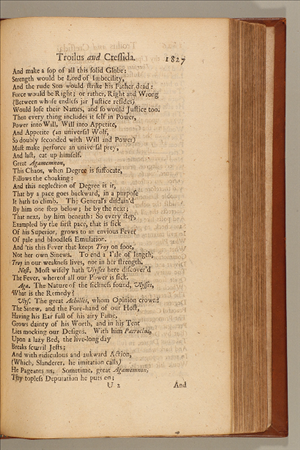 Troilus and Cressida. 1827
And make a sop of all this solid Globe:
Strength would be Lord of Imbecility,
And the rude Son would strike his Father dead:
Force would be Right; or rather, Right and Wrong
(Between whose endless jar Justice resides)
Would lose their Names, and so would Justice too.
Then every thing includes it self in Power,
Power into Will, Will into Appetite,
And Appetite (an universal Wolf,
So doubly seconded with Will and Power)
Must make perforce an universal prey,
And last, eat up himself.
Great Agamemnon,
This Chaos, when Degree is suffocate,
Follows the choaking:
And this neglection of Degree is it,
That by a pace goes backward, in a purpose
It hath to climb. The General's disdain'd
By him one step below; he by the next;
That next, by him beneath: So every step,
Exampled by the first pace, that is sick
Of his Superior, grows to an envious Fever
Of pale and bloodless Emulation.
And 'tis this Fever that keeps Troy on foot,
Not her own Sinews. To end a Tale of length,
Troy in our weakness lives, not in her strength.
Nest. Most wisely hath Ulysses here discover'd
The Fever, whereof all our Power is sick.
Aga. The Nature of the sickness found, Ulysses,
What is the Remedy?
Ulys. The great Achilles, whom Opinion crowns
The Sinew, and the Fore-hand of our Host,
Having his Ear full of his airy Fame,
Grows dainty of his Worth, and in his Tent
Lies mocking our Designs. With him Patroclus,
Upon a lazy Bed, the live-long day
Breaks scurril Jests;
And with ridiculous and aukward Action,
(Which, Slanderer, he imitation calls)
He Pageants us. Sometime, great Agamemnon,
Thy topless Deputation he puts on;
U 2 And